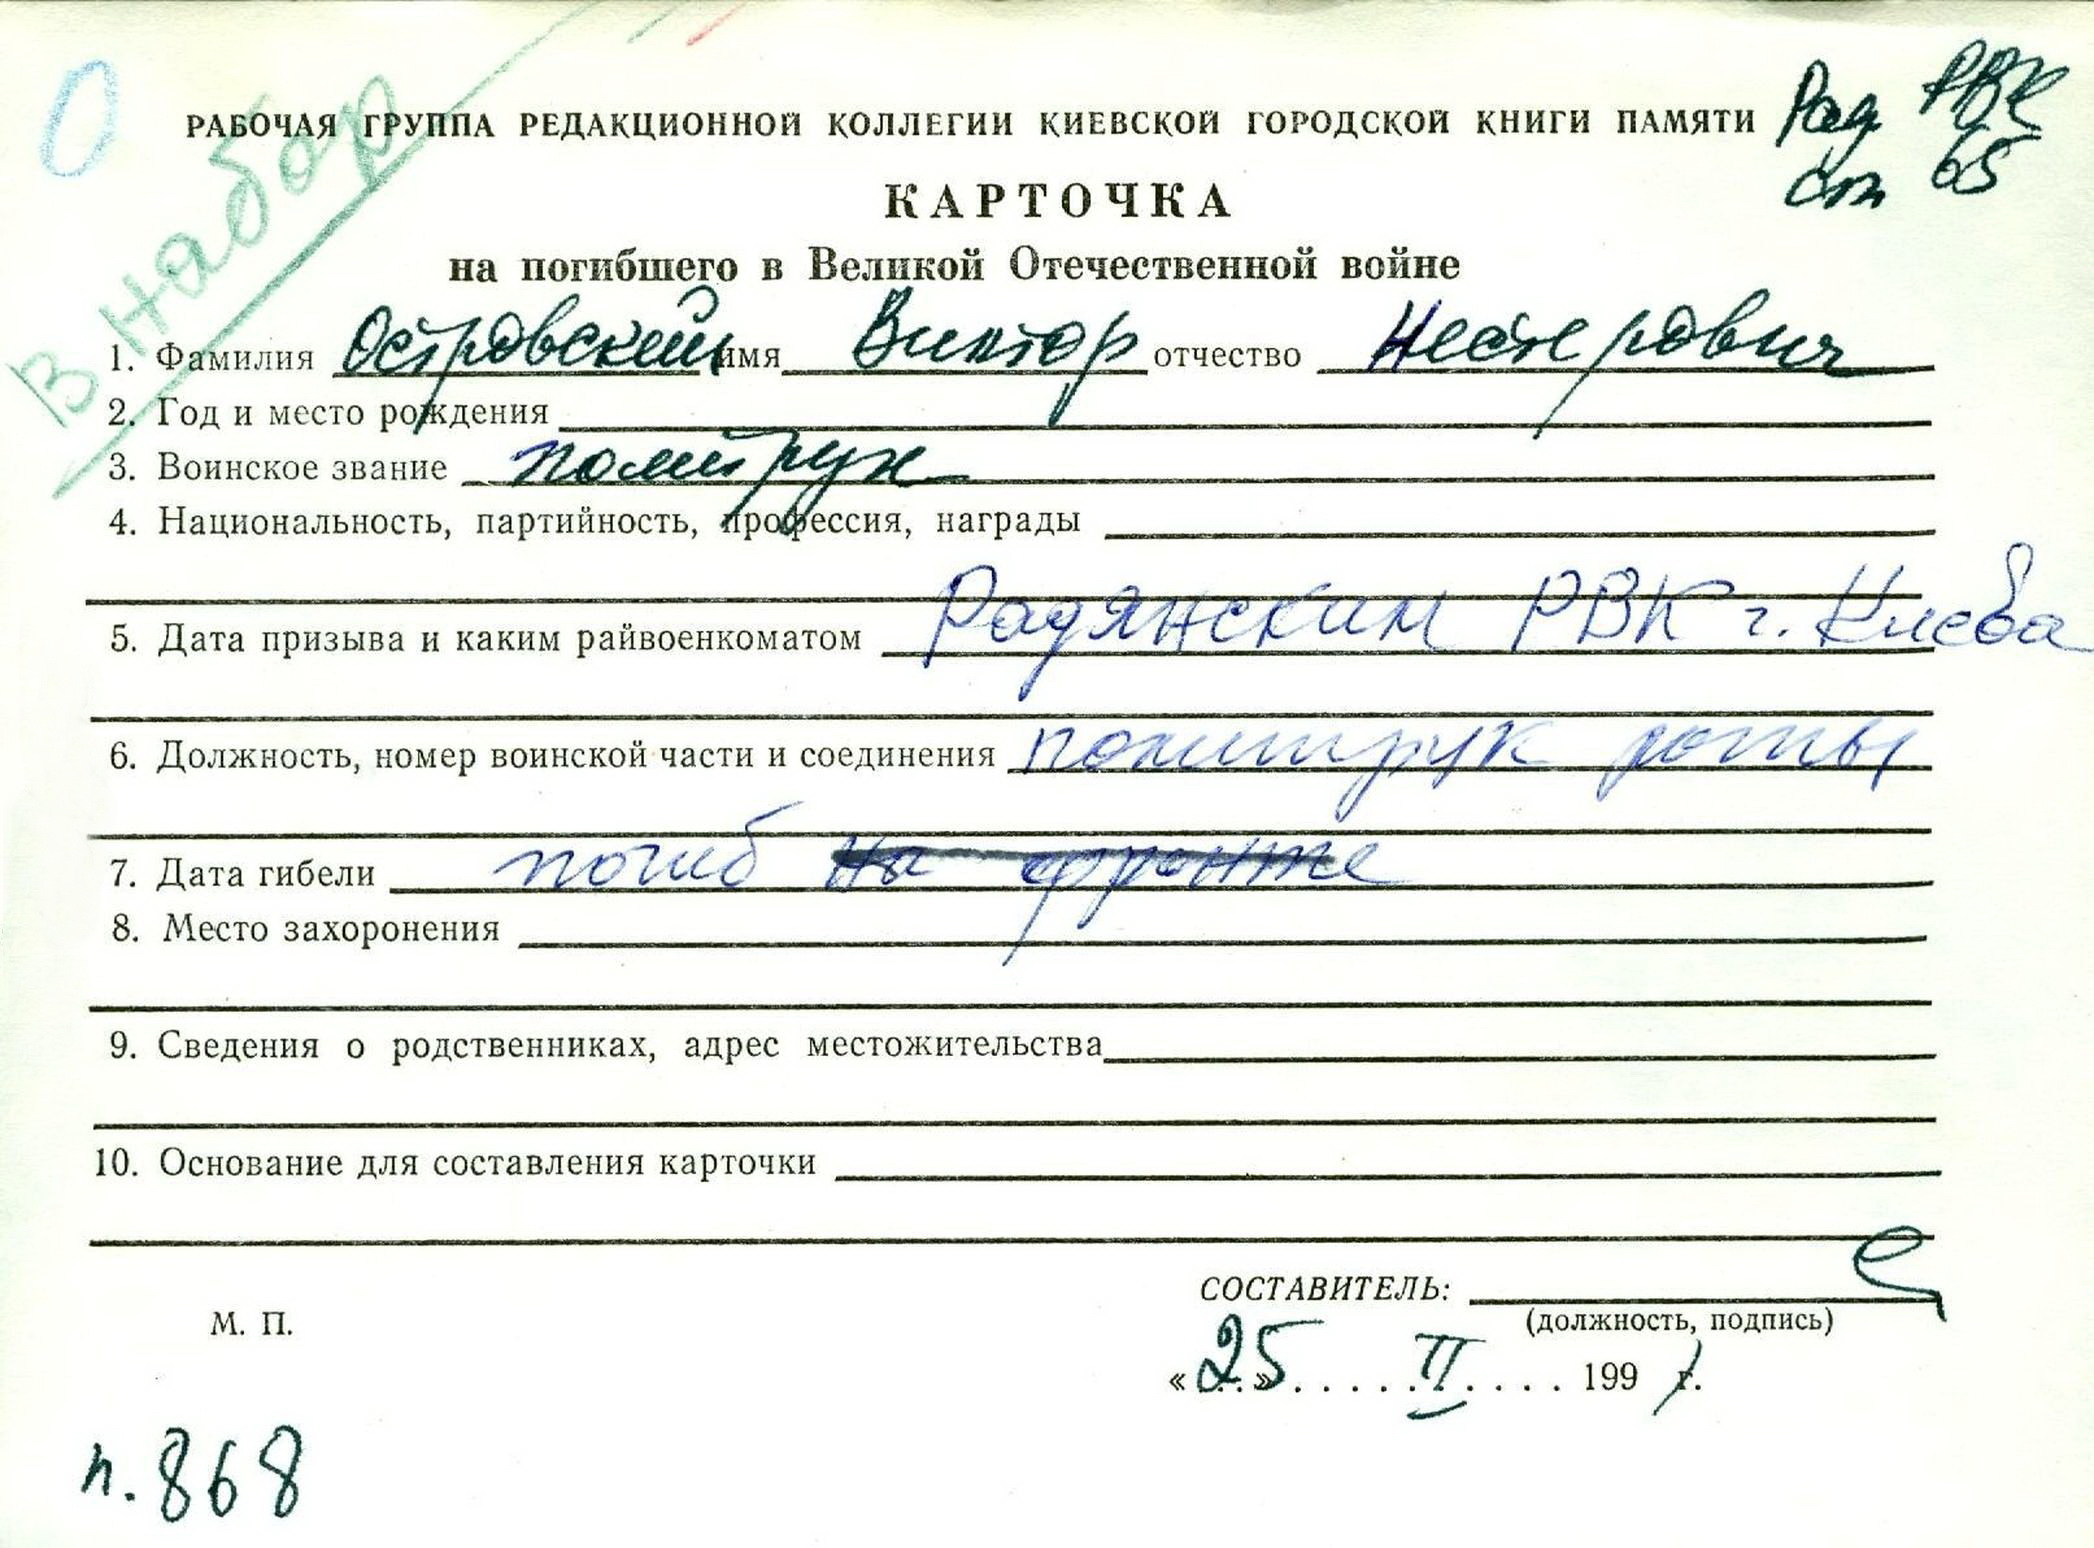 О
В набор
Рад РВК
стр 65
РАБОЧАЯ ГРУППА РЕДАКЦИОННОЙ КОЛЛЕГИИ КИЕВСКОЙ ГОРОДСКОЙ КНИГИ ПАМЯТИ
КАРТОЧКА
на погибшего в Великой Отечественной войне
1. Фамилия Островский имя Виктор отчество Нестерович
2. Год и место рождения
3. Воинское звание политрук
4. Национальность, партийность, профессия, награды
5. Дата призыва и каким райвоенкоматом Радянским РВК г. Киева
6. Должность, номер воинской части и соединения политрук роты
7. Дата гибели погиб на фронте
8. Место захоронения
9. Сведения о родственниках, адрес местожительства
10. Основание для составления карточки
СОСТАВИТЕЛЬ:
(должность, подпись)
М. П.
«25» II 1991 г.
п. 868